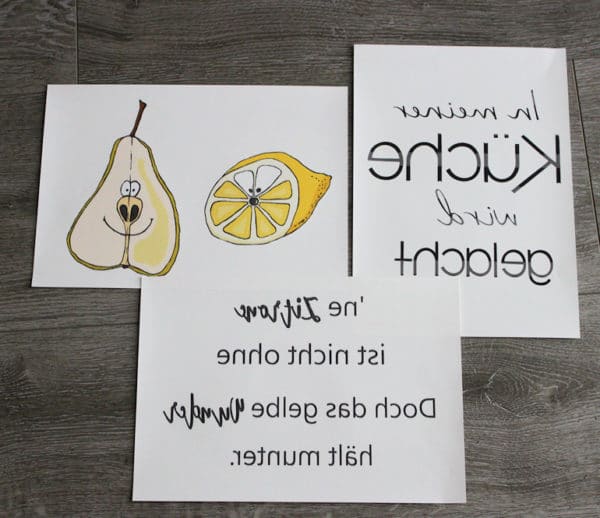 In meiner
Küche
wird
gelacht
'ne Zitrone
ist nicht ohne
Doch das gelbe Wunder
hält munter.